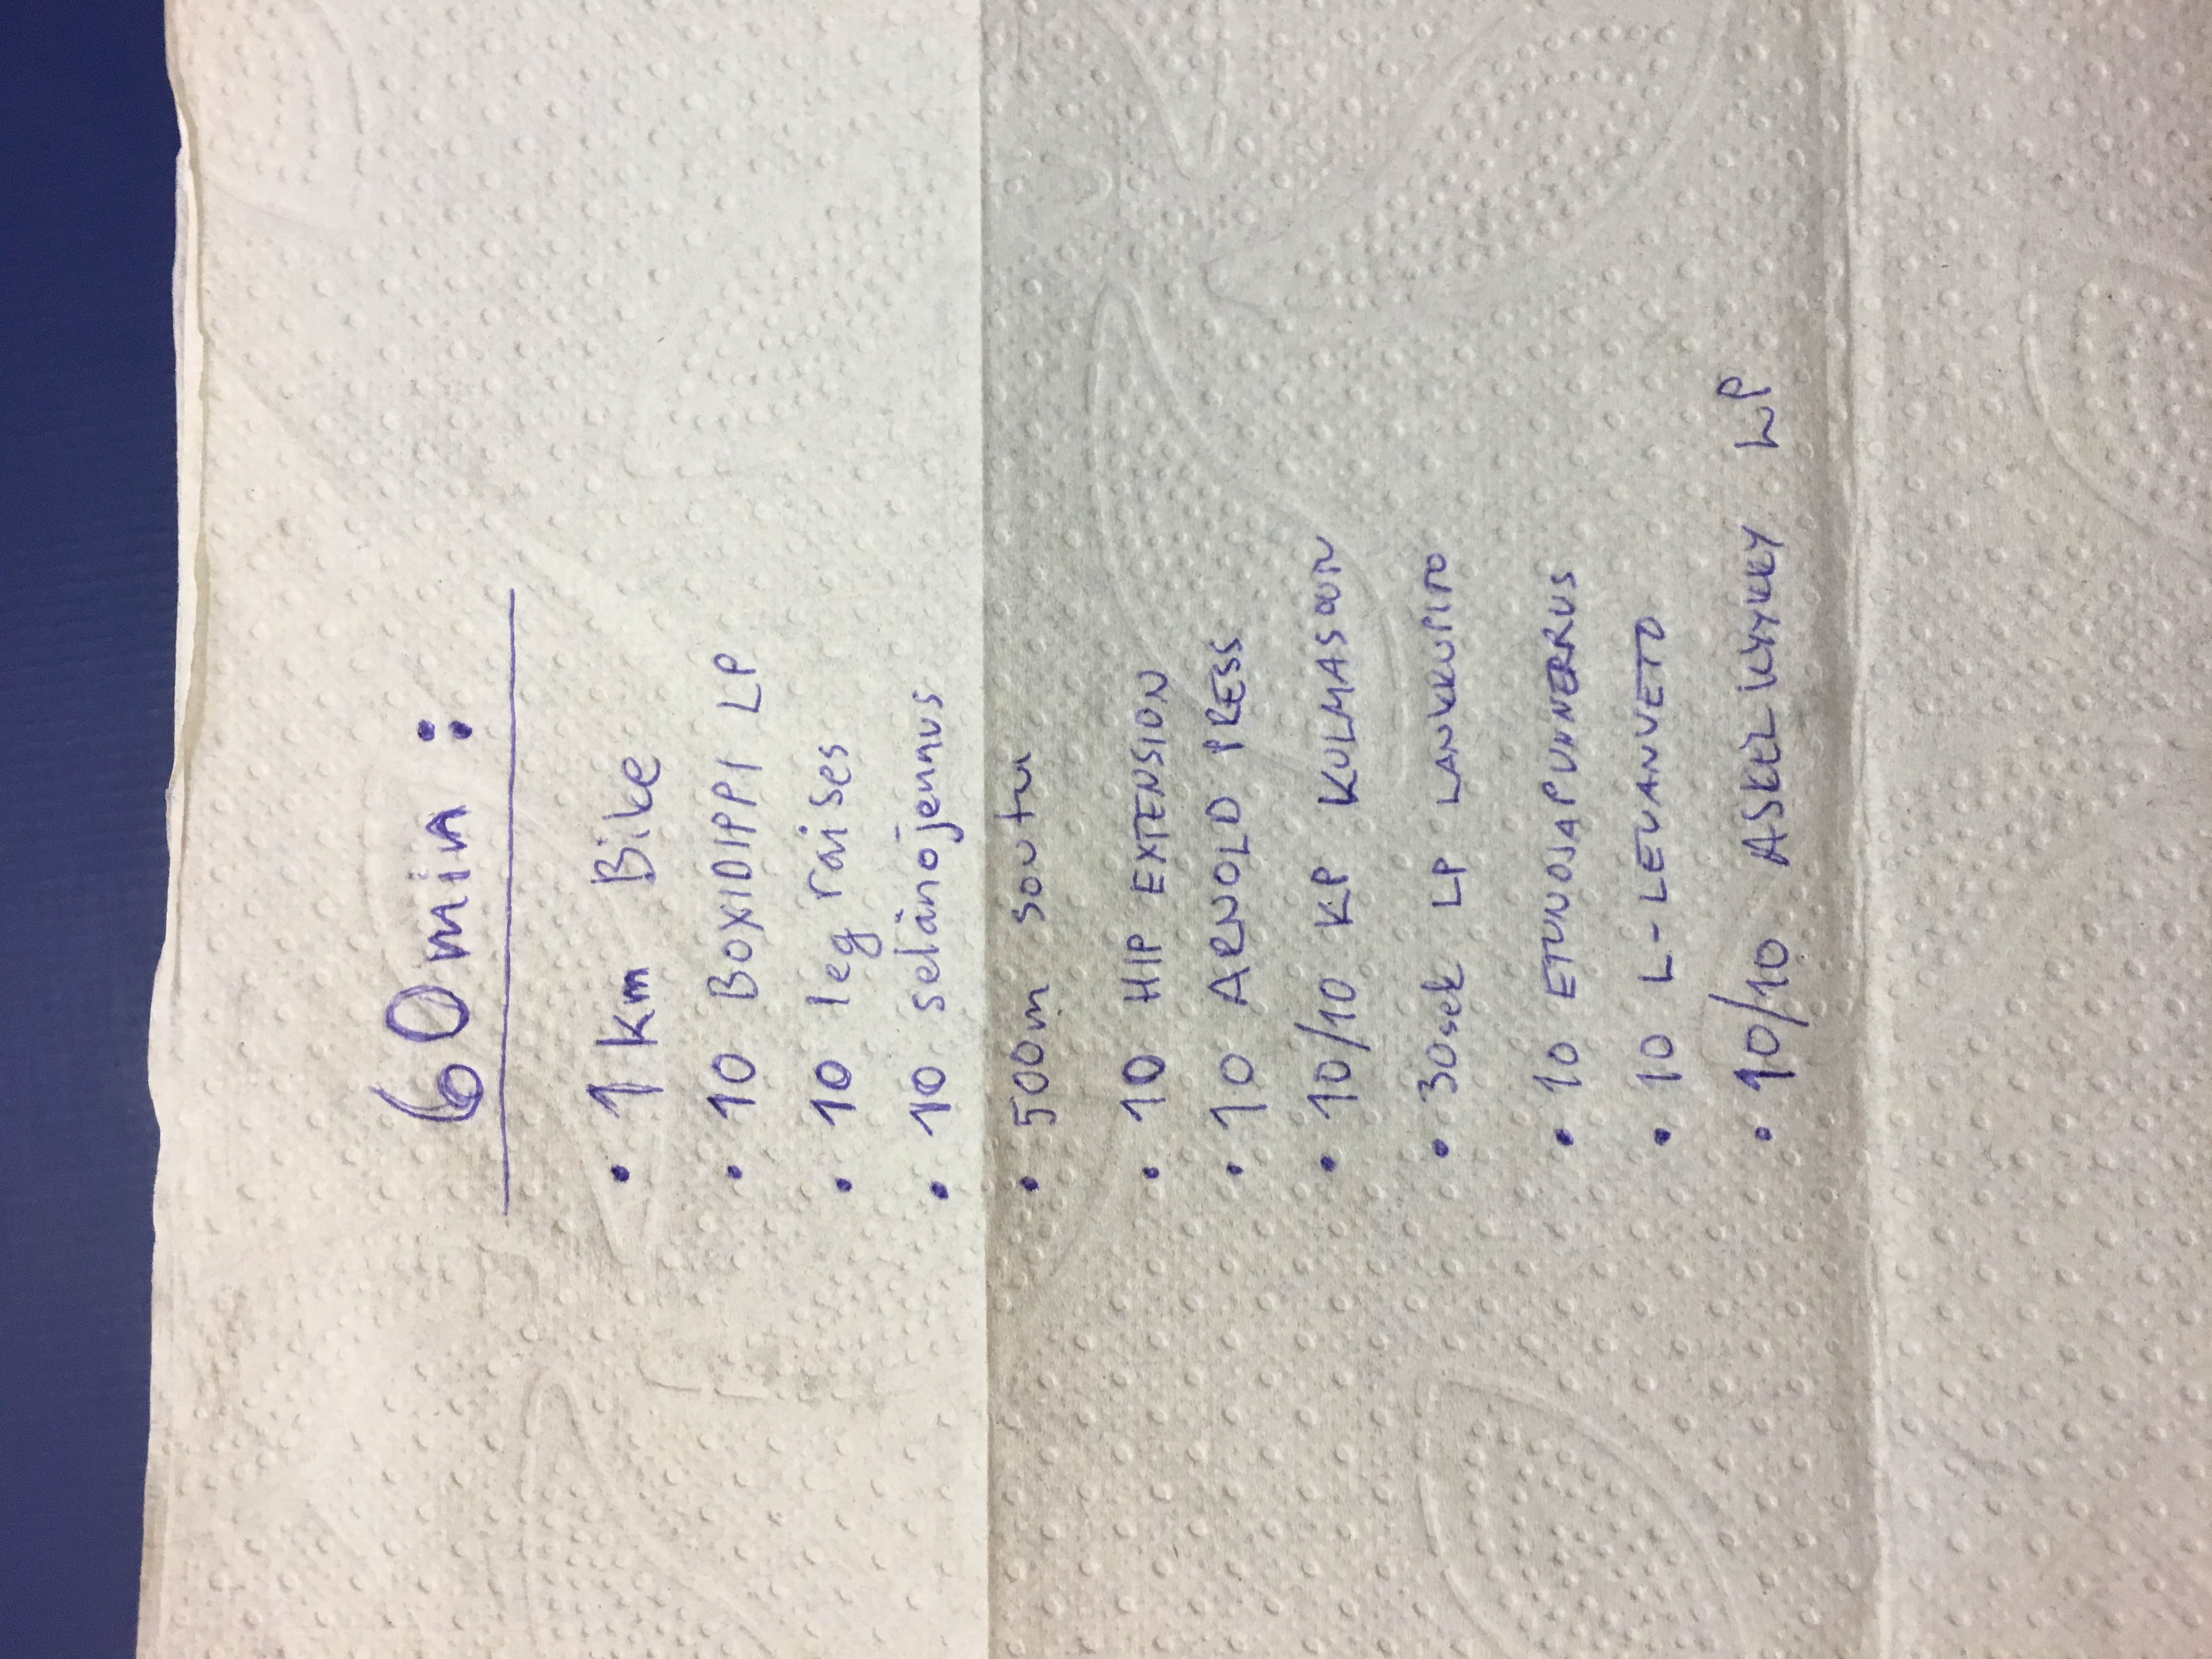 60min:
• 1km Bike
• 10 BOXIDIPPI LP
• 10 leg raises
• 10 selänojennus
• 500m soutu
• 10 HIP EXTENSION
• 10 ARNOLD PRESS
• 10/10 KP KULMASOUTU
• 30sek LP LANKKUPITO
• 10 ETUNOJAPUNNERRUS
• 10 L-LEUANVETO
• 10/10 ASKELKYYKKY LP